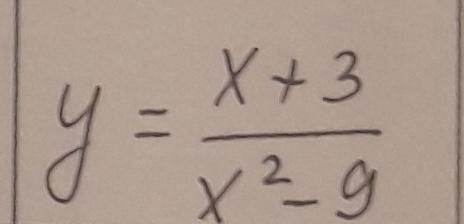 y = (x + 3) / (x² - 9)